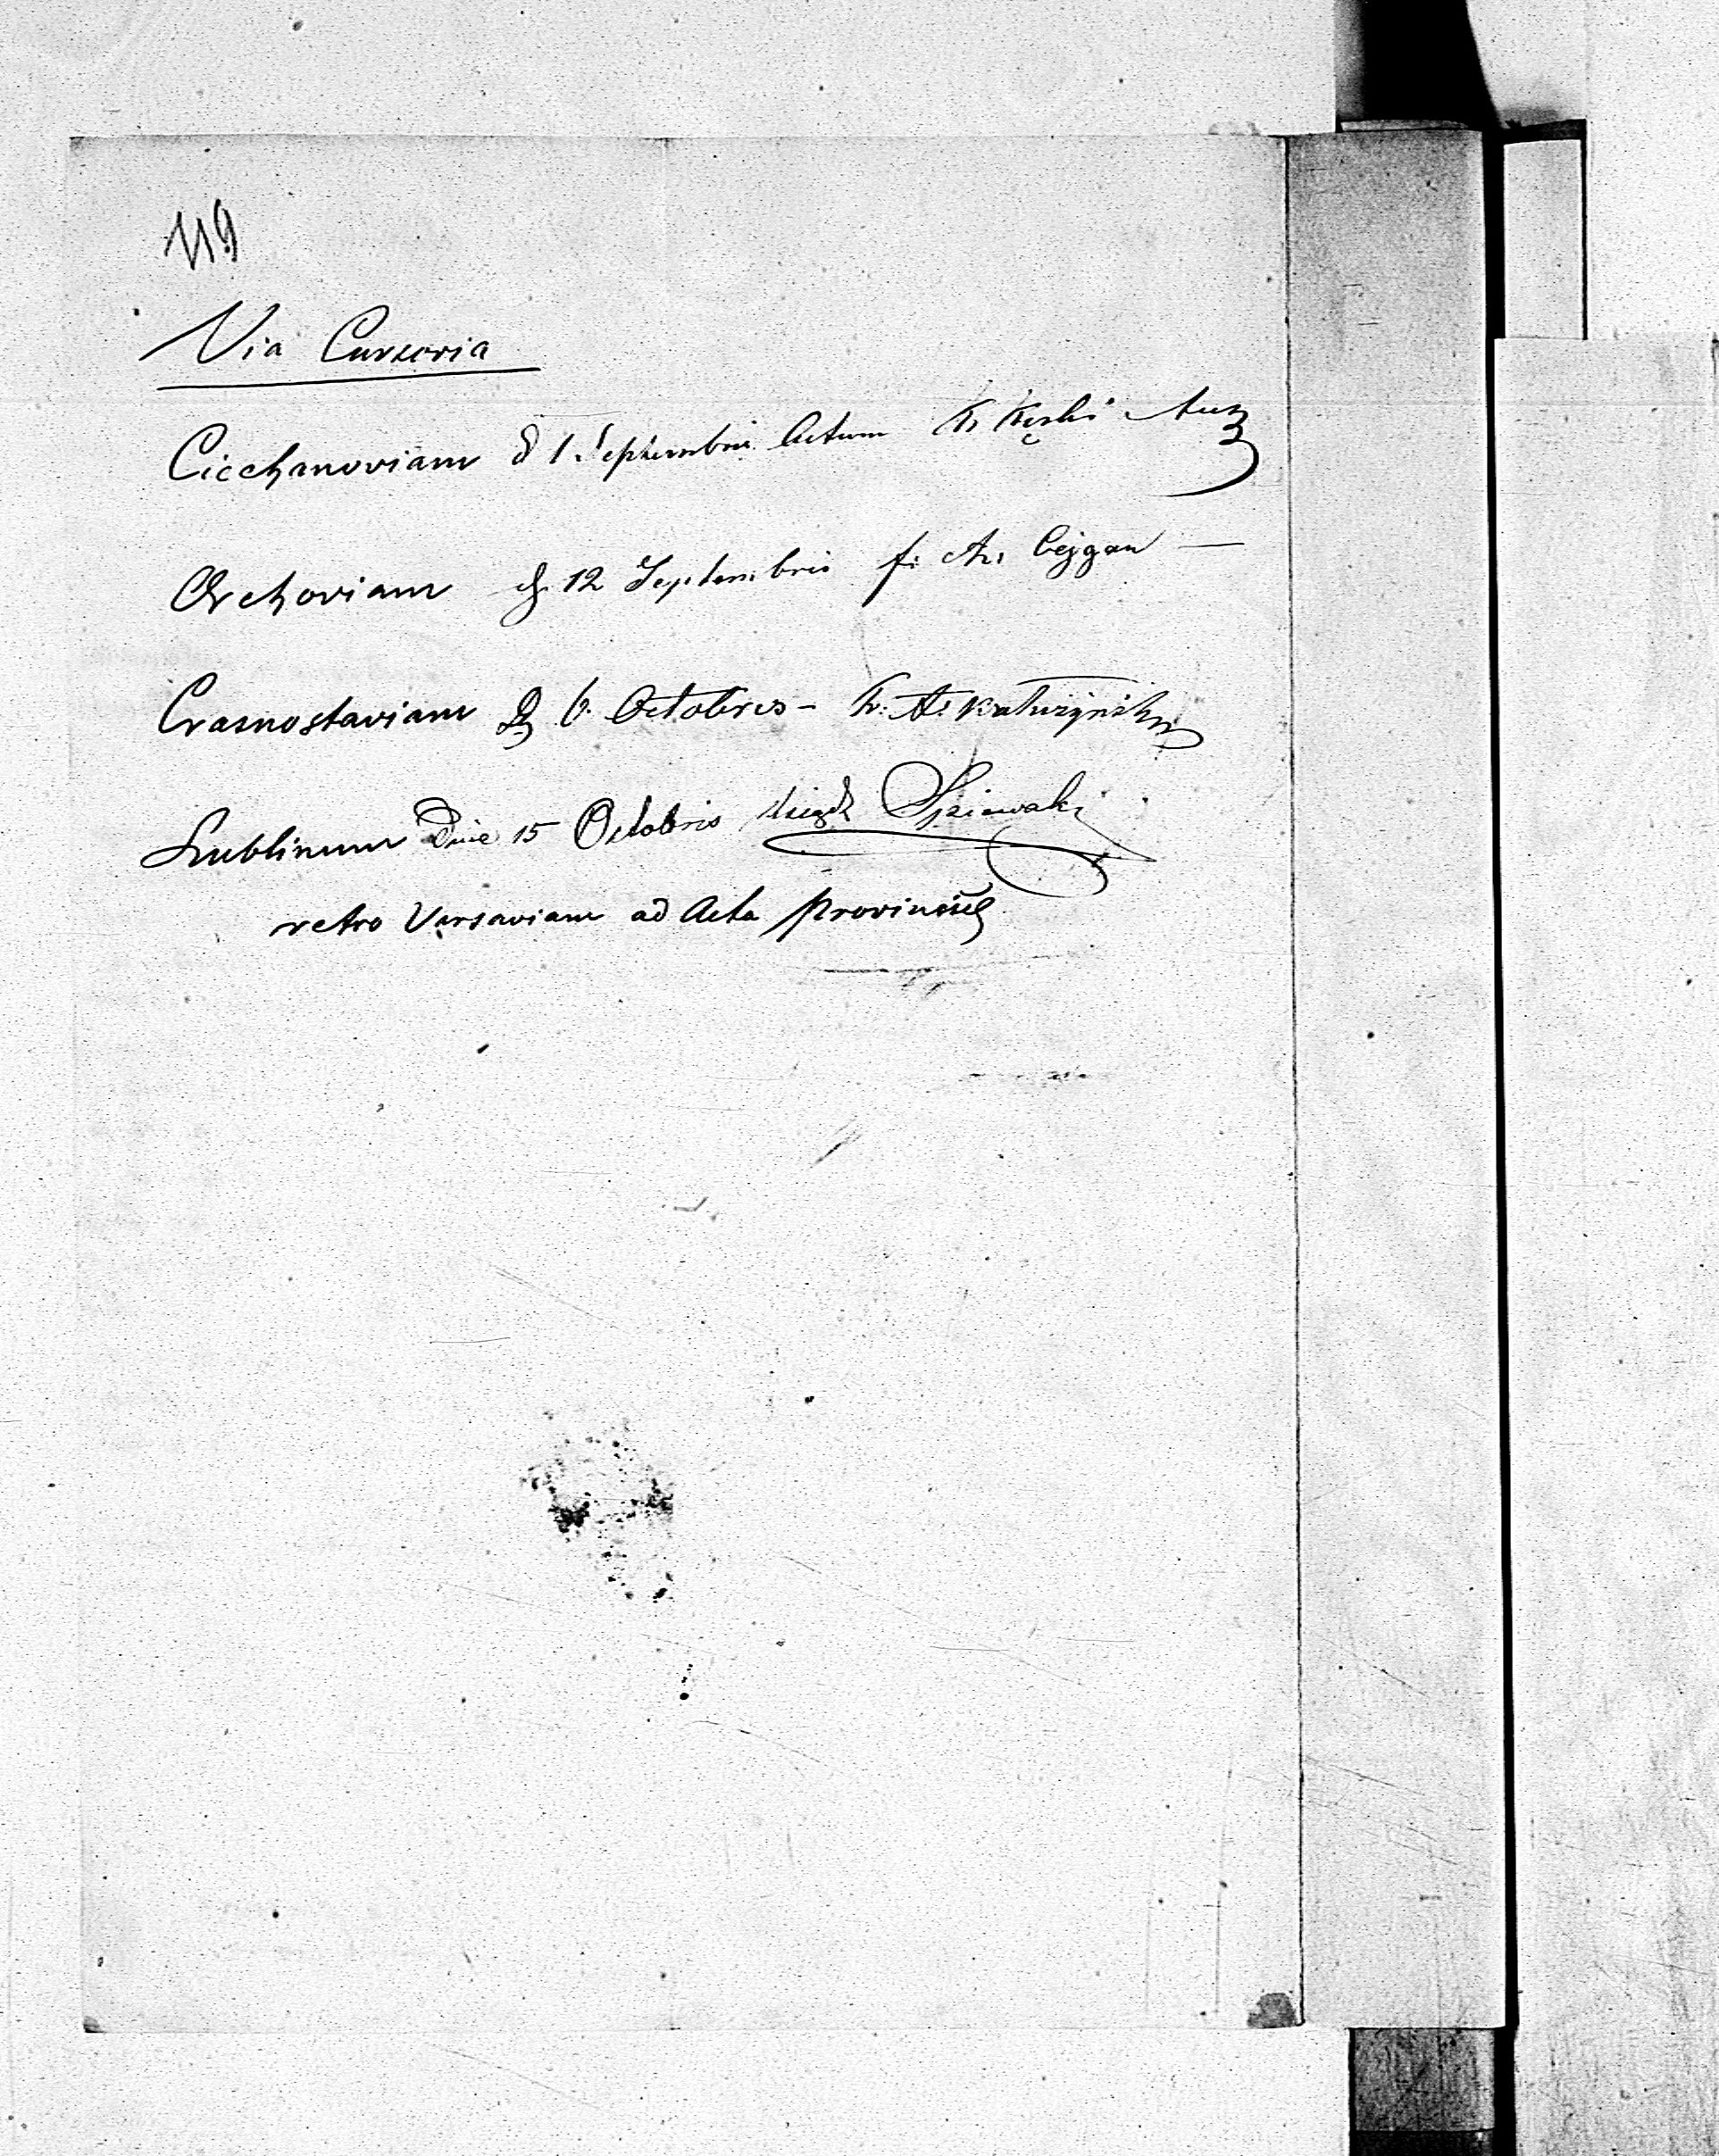 119
Via Cursoria
Ciechanoviam d 1 Septembris Actum Fr Kęski
Orchoviam d. 12 Septembris f. A. Cejgan —
Crasnostaviam D 6. Octobris – Fr. A. Kałużyński
Lublinum Die 15 Octobris
retro Varsaviam ad Acta Provinciae